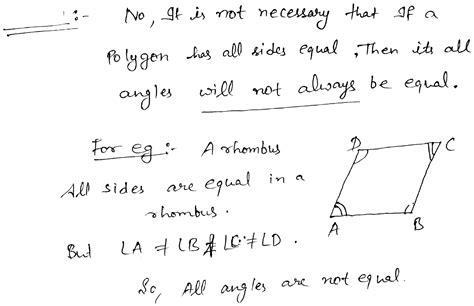 :- No, It is not necessary that If a
Polygon has all sides equal, Then its all
angles will not always be equal.
For eg :- A rhombus
All sides are equal in a
rhombus.
But ∠A ≠ ∠B ≠ ∠C ≠ ∠D.
So, All angles are not equal.
D
C
A
B